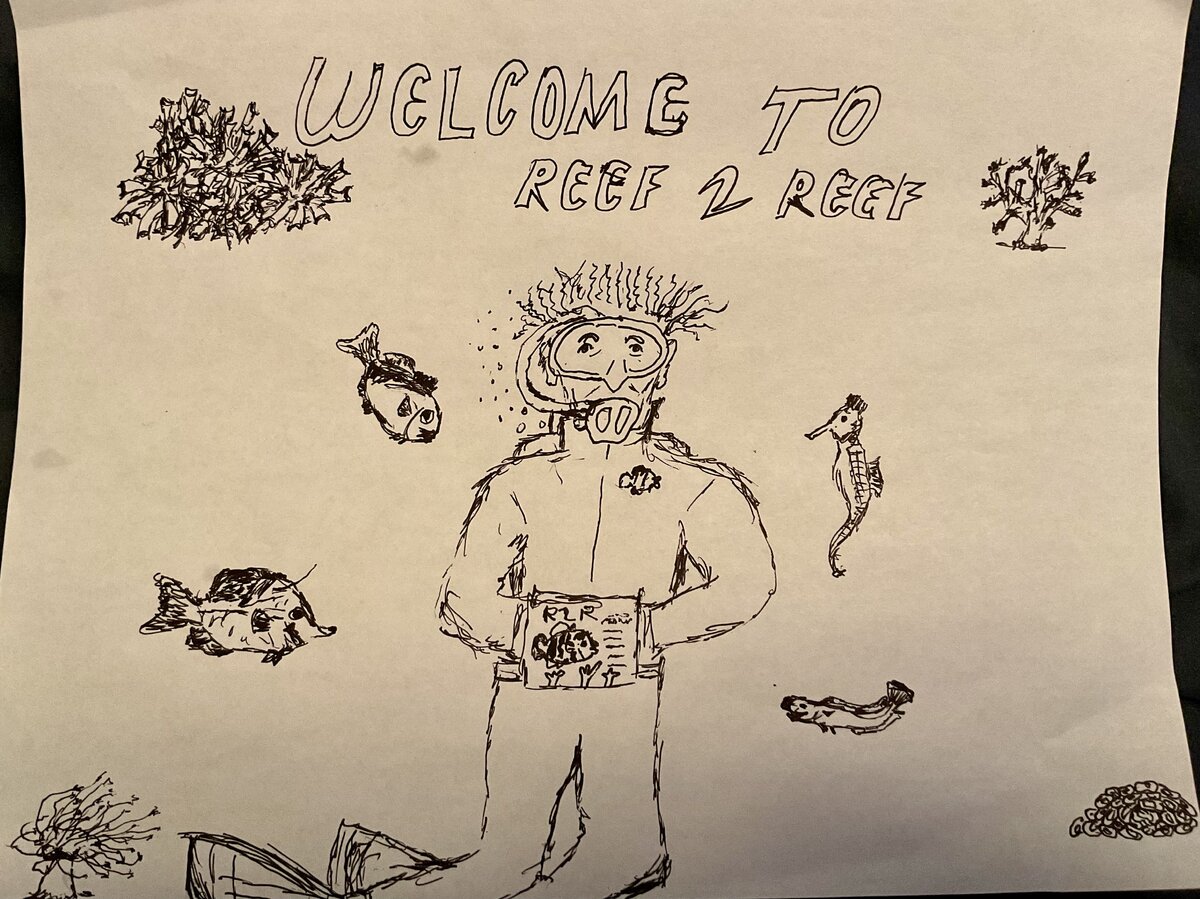 WELCOME TO
REEF 2 REEF
R2R